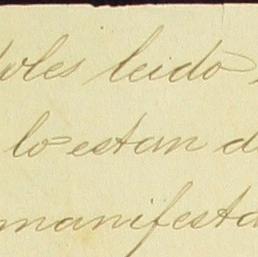 doles leido
lo estan d
manifesta